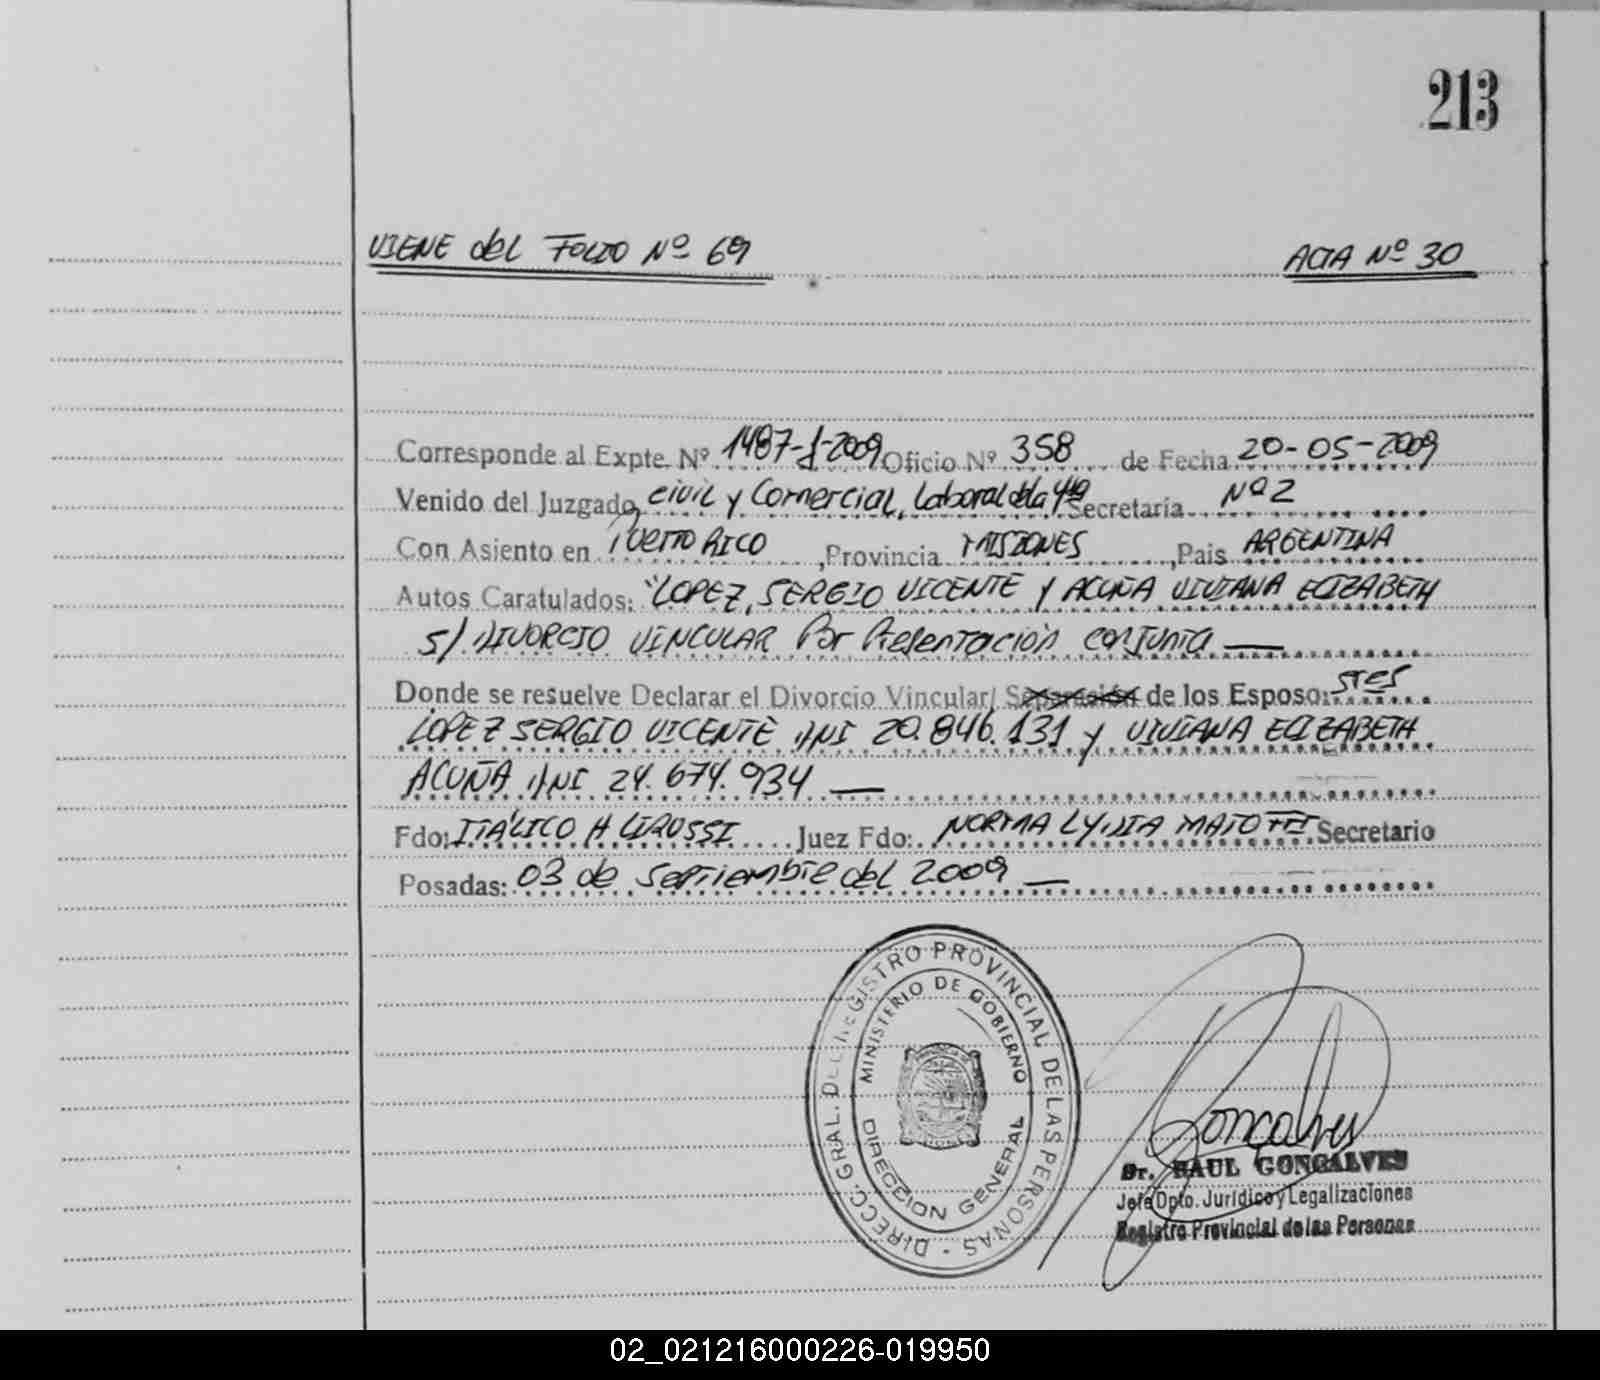 213
VIENE del FOLIO Nº 69 ACTA Nº 30
Corresponde al Expte. Nº 1487-J-2009 Oficio Nº 358 de Fecha 20-05-2009
Venido del Juzgado Civil y Comercial, Laboral de la 4ta Secretaría Nº 2
Con Asiento en Puerto RICO, Provincia MISIONES, Pais ARGENTINA
Autos Caratulados: "LOPEZ, SERGIO VICENTE y ACUÑA VIVIANA ELIZABETH
S/ DIVORCIO VINCULAR Por Presentación conjunta —
Donde se resuelve Declarar el Divorcio Vincular/ Separación de los Esposo: STES
LOPEZ SERGIO VICENTE DNI 20.846.131 y VIVIANA ELIZABETH
ACUÑA DNI 24.674.934 —
Fdo: ITÁLICO H LIROSSI Juez Fdo: NORMA LYDIA Secretario
Posadas: 03 de septiembre del 2009 —
DIRECC. GRAL. DEL REGISTRO PROVINCIAL DE LAS PERSONAS -
MINISTERIO DE GOBIERNO
DIRECCION GENERAL
Goncalves
Dr. RAUL GONCALVES
Jefe Dpto. Jurídico y Legalizaciones
Registro Provincial de las Personas
02_021216000226-019950